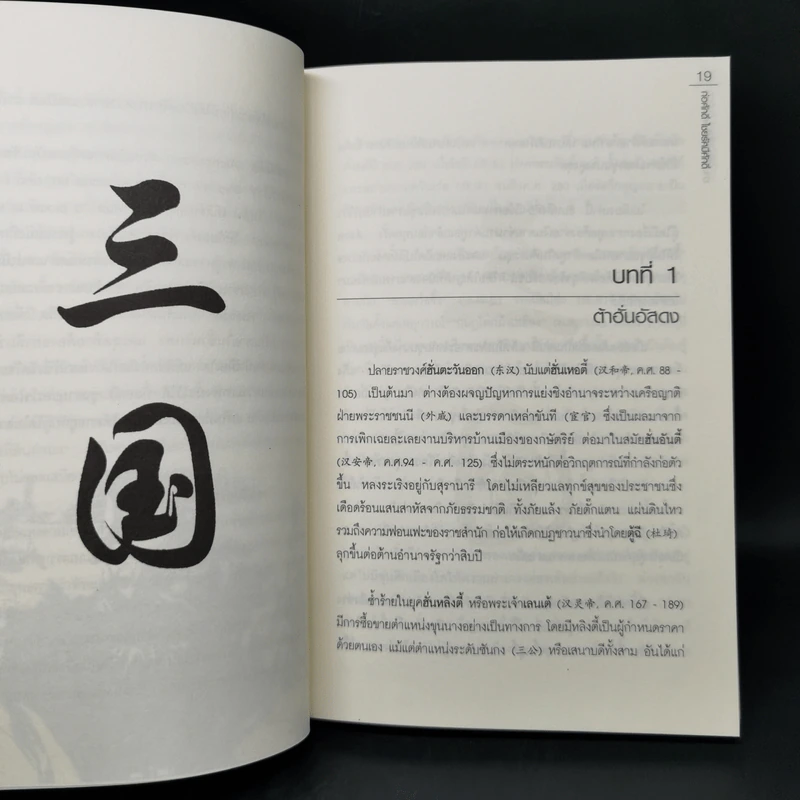 三
国
19
ก่อศักดิ์ ไชยรัศมีศักดิ์
บทที่ 1
ต้าฮั่นอัสดง
ปลายราชวงศ์ฮั่นตะวันออก (东汉) นับแต่ฮั่นเหอตี้ (汉和帝, ค.ศ. 88 -
105) เป็นต้นมา ต่างต้องผจญปัญหาการแย่งชิงอำนาจระหว่างเครือญาติ
ฝ่ายพระราชชนนี (外戚) และบรรดาเหล่าขันที (宦官) ซึ่งเป็นผลมาจาก
การเพิกเฉยละเลยงานบริหารบ้านเมืองของกษัตริย์ ต่อมาในสมัยฮั่นอันตี้
(汉安帝, ค.ศ.94 - ค.ศ. 125) ซึ่งไม่ตระหนักต่อวิกฤตการณ์ที่กำลังก่อตัว
ขึ้น หลงระเริงอยู่กับสุรานารี โดยไม่เหลียวแลทุกข์สุขของประชาชนซึ่ง
เดือดร้อนแสนสาหัสจากภัยธรรมชาติ ทั้งภัยแล้ง ภัยตั๊กแตน แผ่นดินไหว
รวมถึงความฟอนเฟะของราชสำนัก ก่อให้เกิดกบฏชาวนาซึ่งนำโดยตู้ฉี (杜琦)
ลุกขึ้นต่อต้านอำนาจรัฐกว่าสิบปี
ซ้ำร้ายในยุคฮั่นหลิงตี้ หรือพระเจ้าเลนเต้ (汉灵帝, ค.ศ. 167 - 189)
มีการซื้อขายตำแหน่งขุนนางอย่างเป็นทางการ โดยมีหลิงตี้เป็นผู้กำหนดราคา
ด้วยตนเอง แม้แต่ตำแหน่งระดับซันกง (三公) หรือเสนาบดีทั้งสาม อันได้แก่